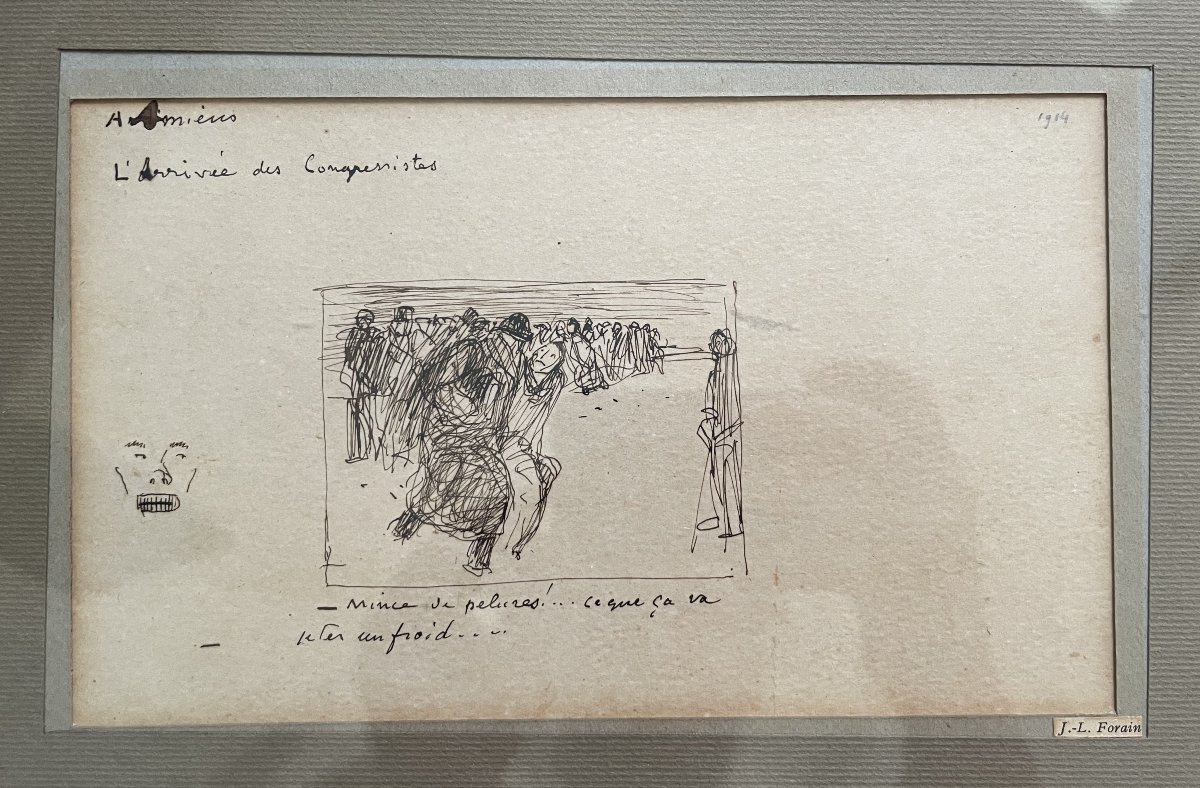 A Amiens
1914
L'Arrivée des Congressistes
— Mince de pelures!... ce que ça va
jeter un froid....
J.-L. Forain